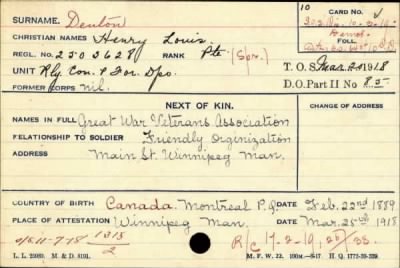 SURNAME. Denton
CHRISTIAN NAMES Henry Louis
REGL. NO. 2503628 RANK Pte (Spr.)
UNIT Rly. Con. & For. Dpo.
FORMER CORPS nil.
10
FOLL.
T. O. S. Mar. 25 1918
D.O. Part II No 85
NEXT OF KIN.
CHANGE OF ADDRESS
NAMES IN FULL Great War Veterans Association
RELATIONSHIP TO SOLDIER Friendly Orginization
ADDRESS Main St. Winnipeg Man.
COUNTRY OF BIRTH Canada. Montreal P.Q. DATE Feb. 22nd 1889
PLACE OF ATTESTATION Winnipeg Man. DATE Mar. 25th 1918
O/S 11-7-18 1318/2
R/C 17-2-19
L. L. 25089. M. & D. 8191.
M. F. W. 22.
H.Q. 1772-39-339.